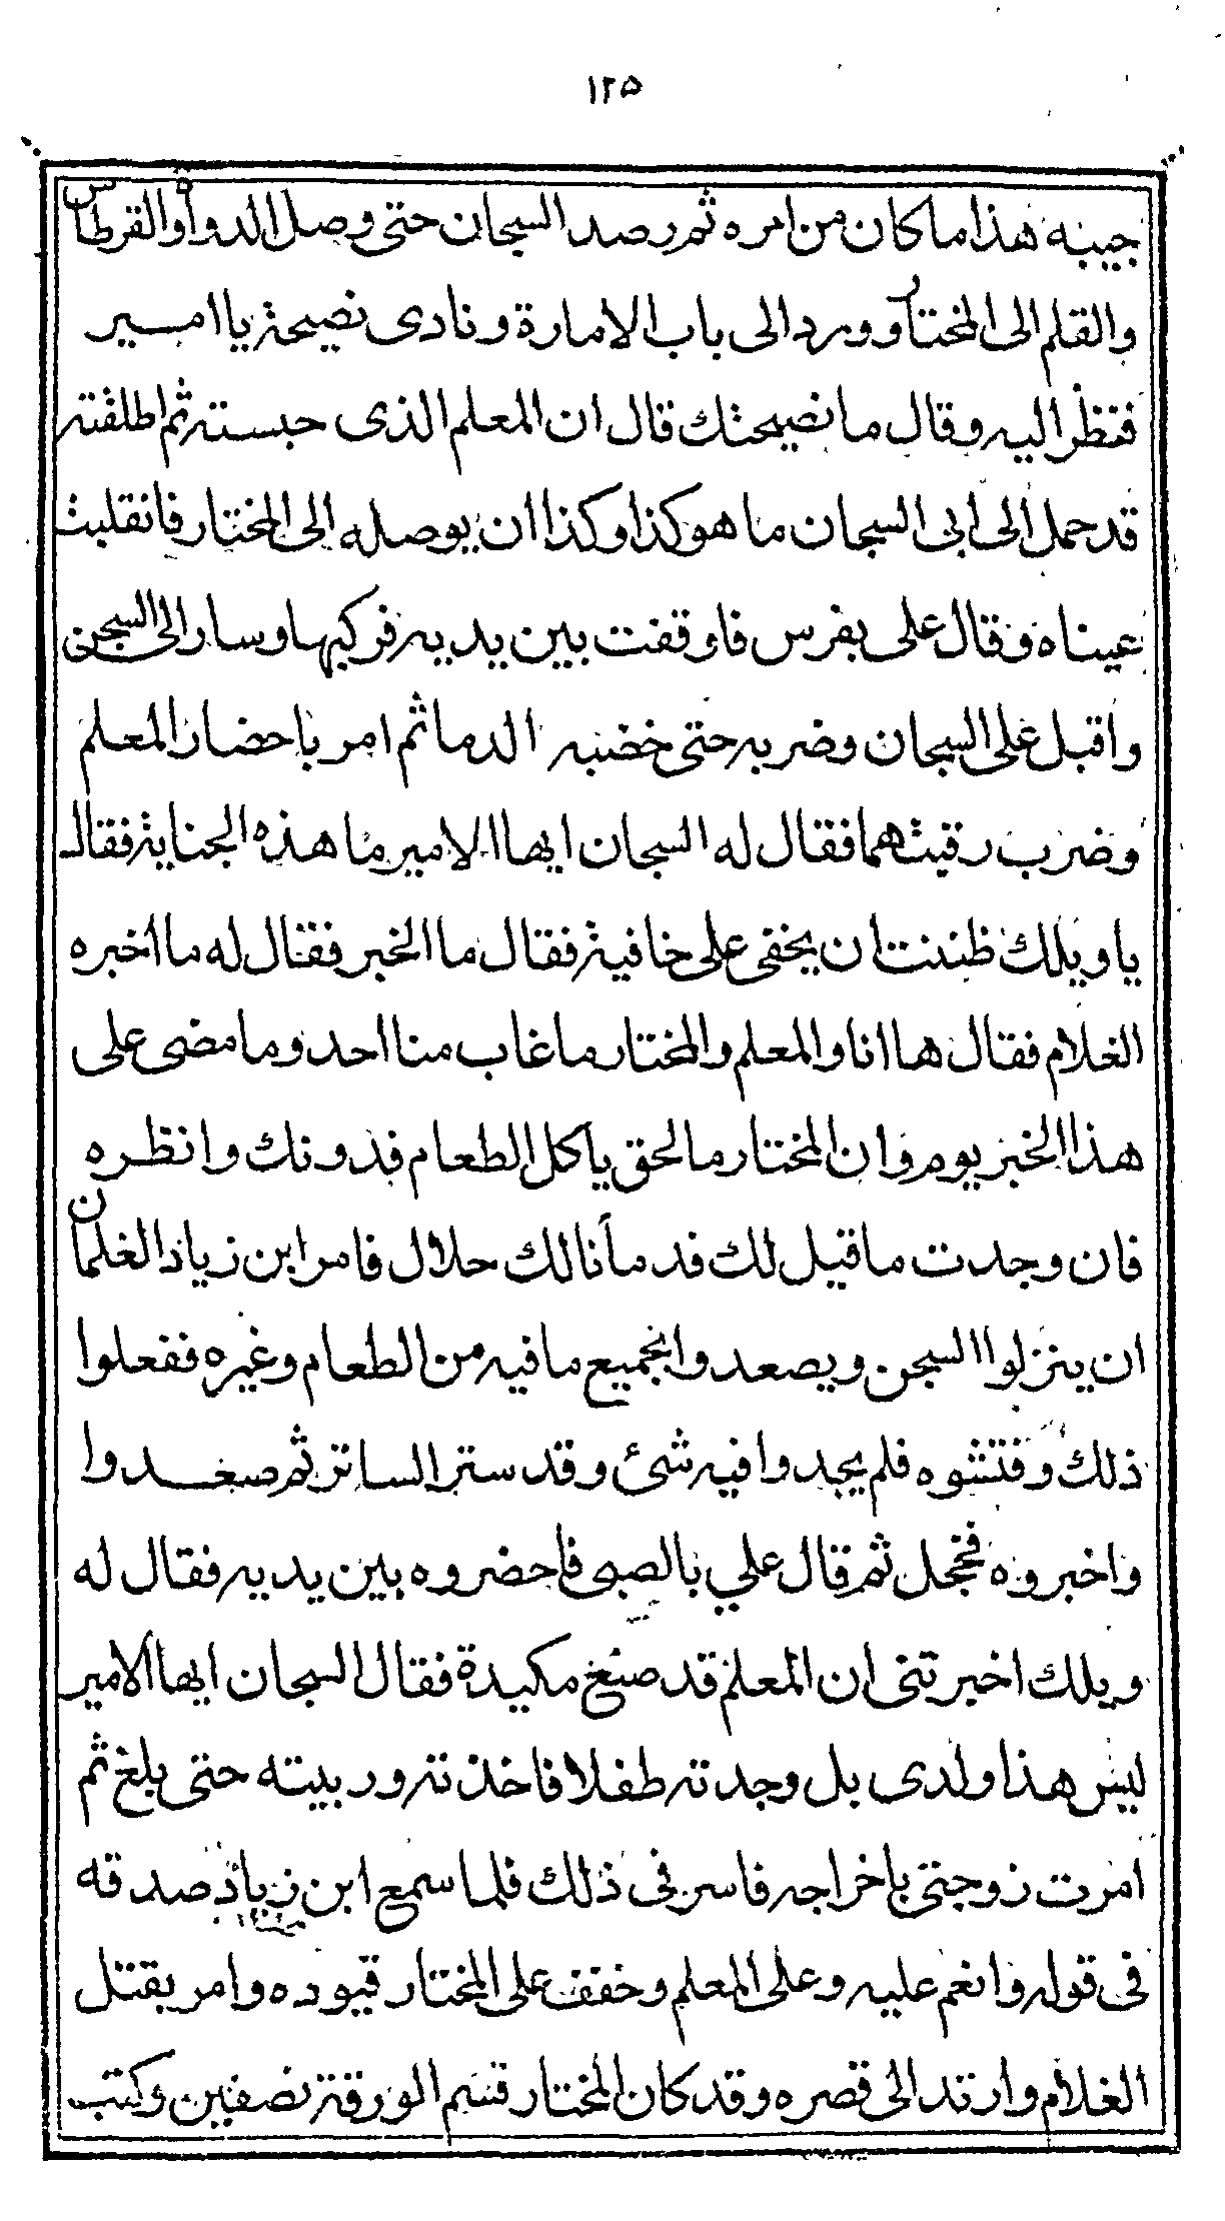 ١٢٥
جيبه هذا ما كان من امره ثم رصد السجان حتى وصل الدواة والقرطاس
والقلم الى المختار وورد الى باب الامارة ونادى نصيحة يا امير
فنظر اليه وقال ما نصيحتك قال ان المعلم الذى حبسته ثم اطلقته
قد حمل الى ابى السجان ما هو كذا وكذا ان يوصله الى المختار فانقلبت
عيناه وقال على بفرس فاوقفت بين يديه فركبها وسار الى السجن
واقبل على السجان وضربه حتى خضبه الدما ثم امر باحضار المعلم
وضرب رقبتهما فقال له السجان ايها الامير ما هذه الجناية فقال
يا ويلك ظننت ان يخفى على خافية فقال ما الخبر فقال له ما اخبره
الغلام فقال ها انا والمعلم والمختار ما غاب منا احد وما مضى على
هذا الخبر يوم وان المختار ما لحق ياكل الطعام فدونك وانظره
فان وجدت ما قيل لك فدمأنا لك حلال فامر ابن زياد الغلمان
ان ينزلوا السجن ويصعدوا بجميع ما فيه من الطعام وغيره ففعلوا
ذلك وفتشوه فلم يجدوا فيه شئ وقد ستر الساتر ثم صعدوا
واخبروه فخجل ثم قال علي بالصبى فاحضروه بين يديه فقال له
ويلك اخبرتنى ان المعلم قد صنع مكيدة فقال السجان ايها الامير
ليس هذا ولدى بل وجدته طفلا فاخذته وربيته حتى بلغ ثم
امرت زوجتى باخراجه فاسر فى ذلك فلما سمع ابن زياد صدقه
فى قوله وانعم عليه وعلى المعلم وخفف على المختار قيوده وامر بقتل
الغلام وارتد الى قصره وقد كان المختار قسم الورقة نصفين وكتب